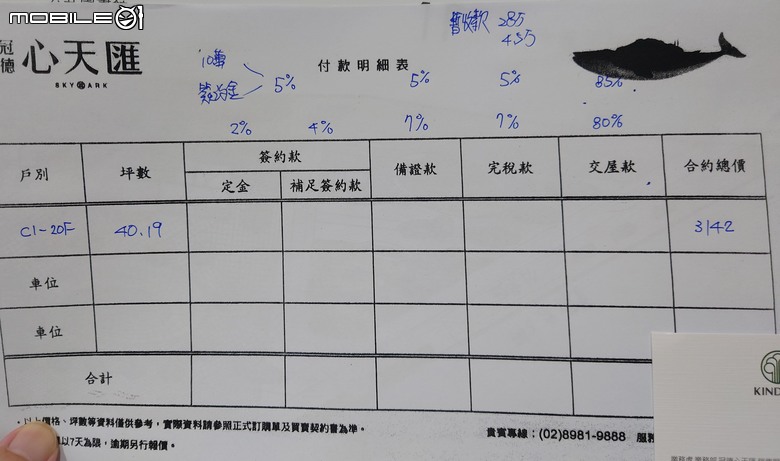 mobile01
冠德 心天匯
SKY ARK
付款明細表
暫收款 285
435
10萬
簽約金 5% 5% 5% 85%
2% 4% 7% 7% 80%
戶別 坪數 簽約款 備證款 完稅款 交屋款 合約總價
定金 補足簽約款
C1-20F 40.19 3142
車位
車位
合計
KIND
以上價格、坪數等資料僅供參考，實際資料請參照正式訂購單及買賣契約書為準。
以7天為限，逾期另行報價。
貴賓專線：(02)8981-9888 服務